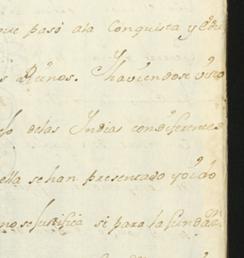 que pasó ala Conquista y
s Reinos. Y haviendose visto
de las Indias con diferentes
ella se han presentado y oido
no se justifica si para la fundaⁿ